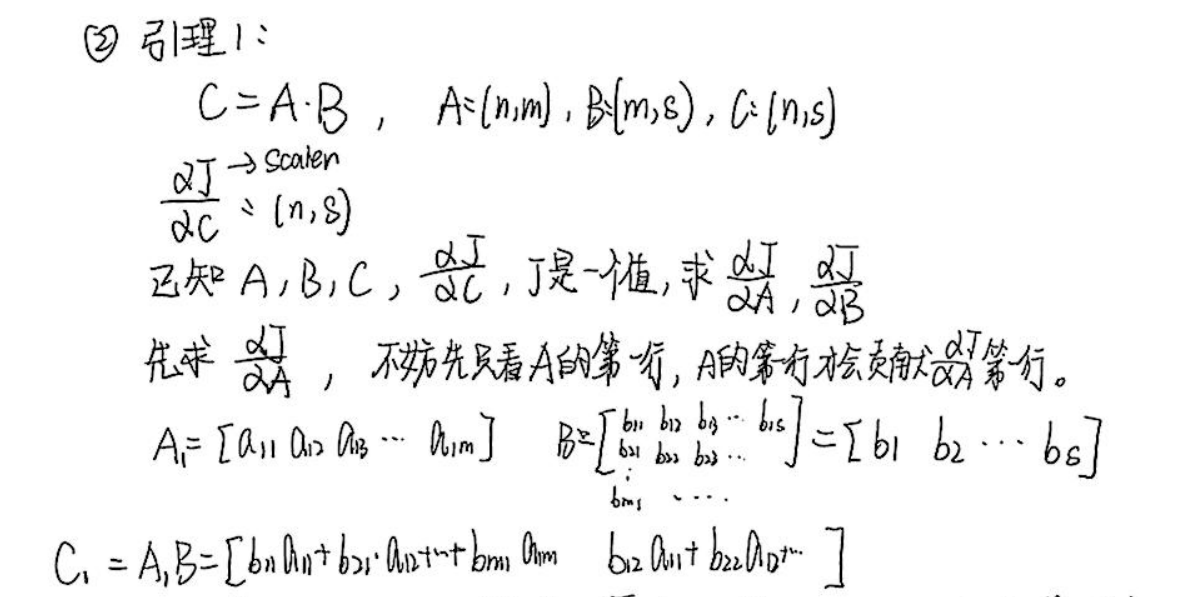 ② 引理1:
C=A·B , A:(n,m), B:(m,s), C:(n,s)
αJ/αC → Scalen : (n,s)
已知 A, B, C, αJ/αC, J是一个值, 求 αJ/αA, αJ/αB
先求 αJ/αA , 不妨先只看A的第一行, A的第一行才会贡献αJ/αA第一行。
A₁=[a₁₁ a₁₂ a₁₃ ··· a₁ₘ] B=[b₁₁ b₁₂ b₁₃ ··· b₁ₛ b₂₁ b₂₂ b₂₃ ··· ⋮ bₘ₁ ····]=[b₁ b₂ ··· bₛ]
C₁=A₁B=[b₁₁a₁₁+b₂₁·a₁₂+···+bₘ₁a₁ₘ b₁₂a₁₁+b₂₂a₁₂+··· ]